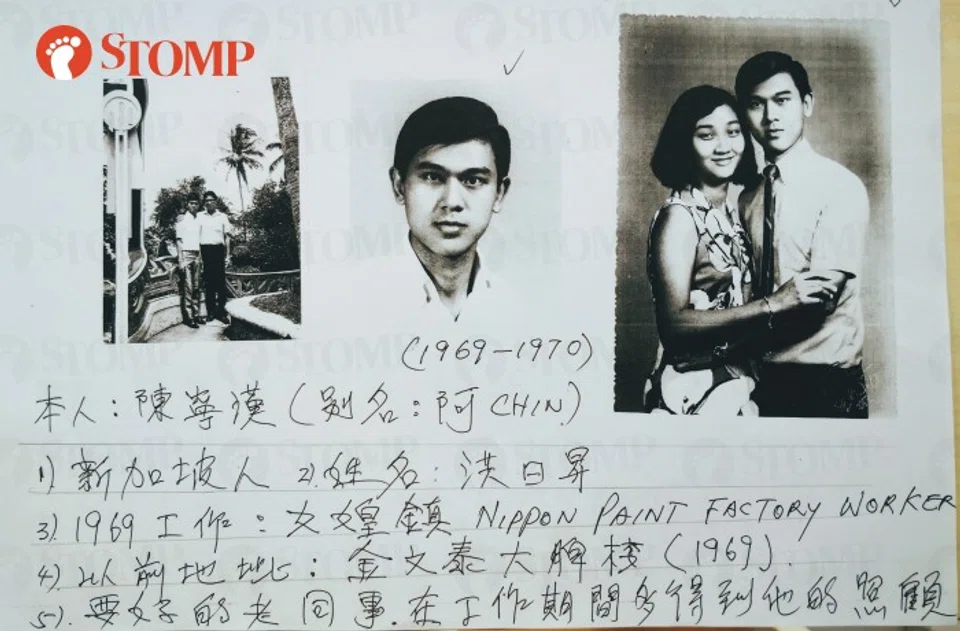 STOMP
(1969-1970)
本人：陳寧漢（別名：阿CHIN）
1) 新加坡人 2) 姓名：洪日昇
3). 1969工作：女皇鎮 NIPPON PAINT FACTORY WORKER
4). 以前地址：金文泰大牌楼（1969）.
5). 要好的老同事.在工作期間多得到他的照顧